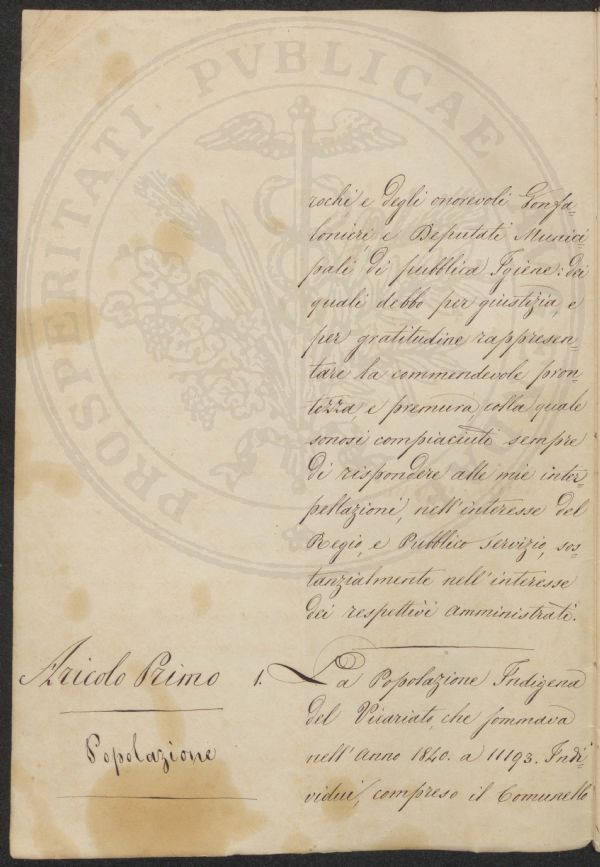 PROSPERITATI PVBLICAE
rochi e degli onorevoli Gonfa-
lonieri e Deputati Munici-
pali di pubblica Igiene: dei
quali debbo per giustizia, e
per gratitudine rappresen-
tare la commendevole pron-
tezza, e premura, colla quale
sonosi compiaciuti sempre
di rispondere alle mie inter-
pellazioni, nell'interesse del
Regio, e Pubblico Servizio, sos-
tanzialmente nell'interesse
dei respettivi amministrati.
Aricolo Primo
Popolazione
1. La Popolazione Indigena
del Vicariato, che sommava
nell'Anno 1840. a 11193. Indi-
vidui, compreso il Comunello